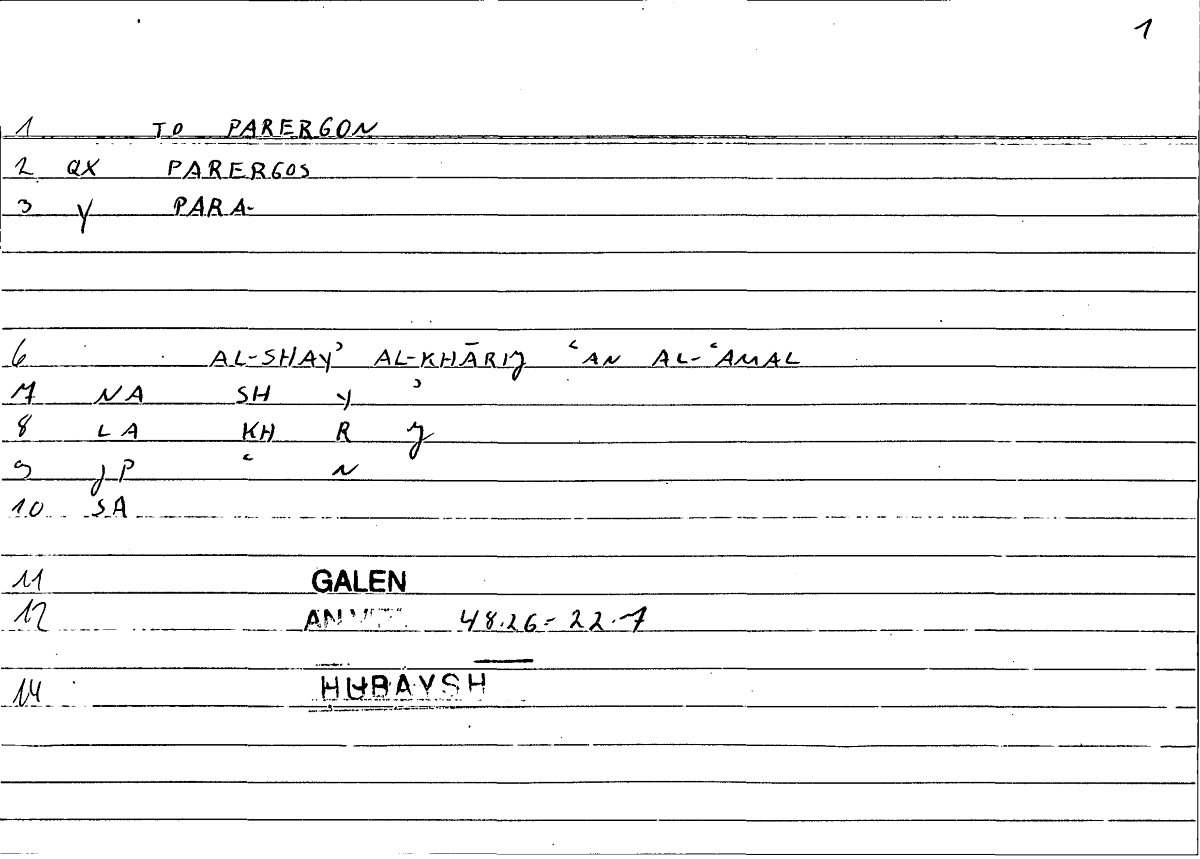 1
1 TO PARERGON
2 QX PARERGOS
3 Y PARA-
6 AL-SHAYʾ AL-KHĀRIJ ʿAN AL-ʿAMAL
7 NA SH Y ʾ
8 LA KH R J
9 JP ʿ N
10 SA
11 GALEN
12 48.26 = 22.7
14 HUBAYSH